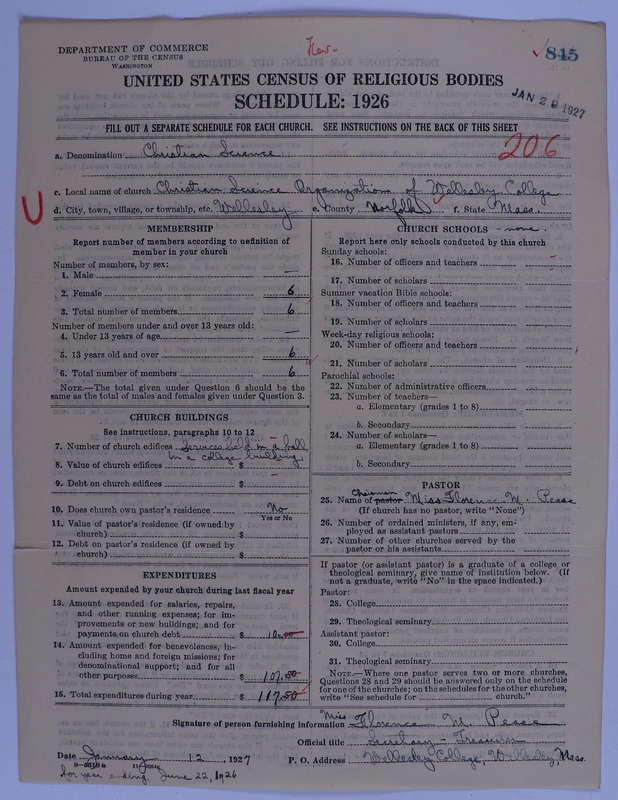 New-
845
DEPARTMENT OF COMMERCE
BUREAU OF THE CENSUS
WASHINGTON
UNITED STATES CENSUS OF RELIGIOUS BODIES
SCHEDULE: 1926
JAN 29 1927
FILL OUT A SEPARATE SCHEDULE FOR EACH CHURCH. SEE INSTRUCTIONS ON THE BACK OF THIS SHEET
206
a. Denomination Christian Science
c. Local name of church Christian Science Organization of Wellesley College
U
d. City, town, village, or township, etc. Wellesley e. County Norfolk f. State Mass.
MEMBERSHIP
Report number of members according to definition of
member in your church
Number of members, by sex:
1. Male —
2. Female 6
3. Total number of members 6
Number of members under and over 13 years old:
4. Under 13 years of age —
5. 13 years old and over 6
6. Total number of members 6
NOTE.—The total given under Question 6 should be the
same as the total of males and females given under Question 3.
CHURCH BUILDINGS
See instructions, paragraphs 10 to 12
7. Number of church edifices Services held in a hall
in a college building.
8. Value of church edifices $
9. Debt on church edifices $
10. Does church own pastor's residence No
Yes or No
11. Value of pastor's residence (if owned by
church) $
12. Debt on pastor's residence (if owned by
church) $
EXPENDITURES
Amount expended by your church during last fiscal year
13. Amount expended for salaries, repairs,
and other running expenses; for im-
provements or new buildings; and for
payments on church debt $ 10.00
14. Amount expended for benevolences, in-
cluding home and foreign missions; for
denominational support; and for all
other purposes $ 107.50
15. Total expenditures during year $ 117.50
CHURCH SCHOOLS - none.
Report here only schools conducted by this church
Sunday schools:
16. Number of officers and teachers
17. Number of scholars
Summer vacation Bible schools:
18. Number of officers and teachers
19. Number of scholars
Week-day religious schools:
20. Number of officers and teachers
21. Number of scholars
Parochial schools:
22. Number of administrative officers
23. Number of teachers—
a. Elementary (grades 1 to 8)
b. Secondary
24. Number of scholars—
a. Elementary (grades 1 to 8)
b. Secondary
PASTOR
Chairman
25. Name of pastor Miss Florence M. Pease
(If church has no pastor, write "None")
26. Number of ordained ministers, if any, em-
ployed as assistant pastors
27. Number of other churches served by the
pastor or his assistants
If pastor (or assistant pastor) is a graduate of a college or
theological seminary, give name of institution below. (If
not a graduate, write "No" in the space indicated.)
Pastor:
28. College
29. Theological seminary
Assistant pastor:
30. College
31. Theological seminary
NOTE.—Where one pastor serves two or more churches,
Questions 28 and 29 should be answered only on the schedule
for one of the churches; on the schedules for the other churches,
write "See schedule for church."
Signature of person furnishing information Miss Florence M. Pease
Official title Secretary - Treasurer
Date January 12, 1927 P. O. Address Wellesley College, Wellesley, Mass.
for year ending June 22, 1926